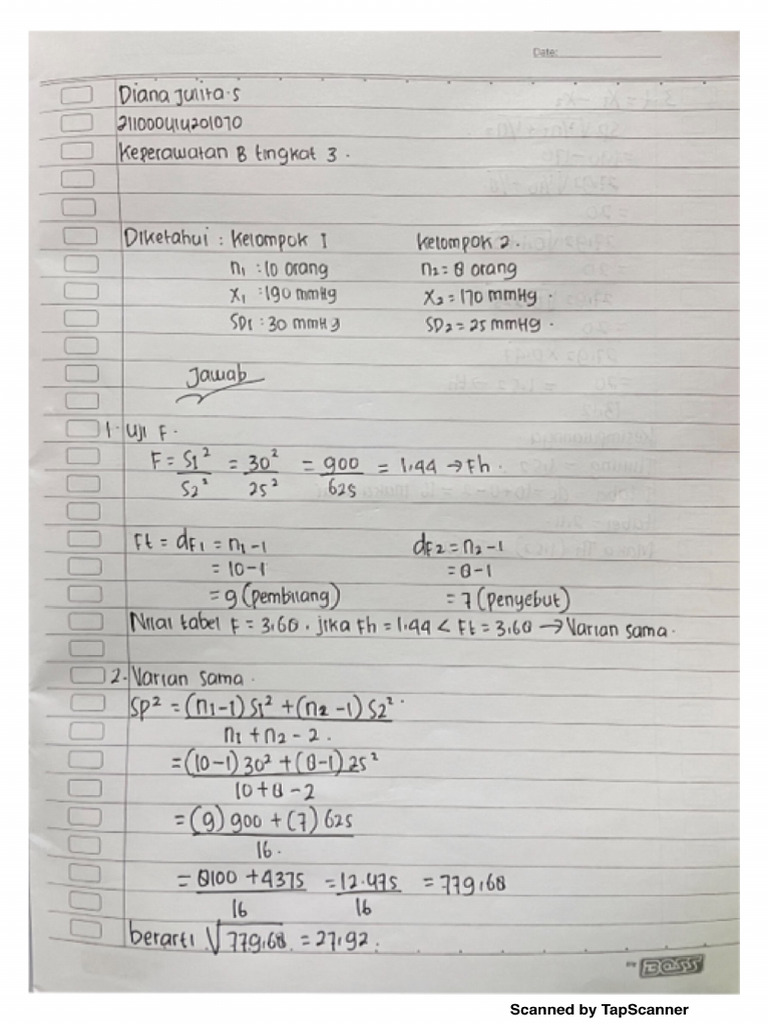 Date:
Diana Julita.S
211000414201070
Keperawatan B tingkat 3.
Diketahui : Kelompok 1 Kelompok 2.
n₁ : 10 orang n₂ = 8 orang
X₁ : 190 mmHg X₂ = 170 mmHg.
SD₁ : 30 mmHg SD₂ = 25 mmHg.
Jawab
1. Uji F.
F = S₁² / S₂² = 30² / 25² = 900 / 625 = 1.44 → Fh.
Ft = dF₁ = n₁ - 1 dF₂ = n₂ - 1
= 10 - 1 = 8 - 1
= 9 (pembilang) = 7 (penyebut)
Nilai tabel F = 3.68. jika Fh = 1.44 < Ft = 3.68 → Varian sama.
2. Varian sama.
Sp² = (n₁-1) S₁² + (n₂-1) S₂² / n₁ + n₂ - 2.
= (10-1) 30² + (8-1) 25² / 10 + 8 - 2
= (9) 900 + (7) 625 / 16.
= 8100 + 4375 / 16 = 12.475 / 16 = 779,68
berarti √779,68 = 27,92.
BOSS
Scanned by TapScanner